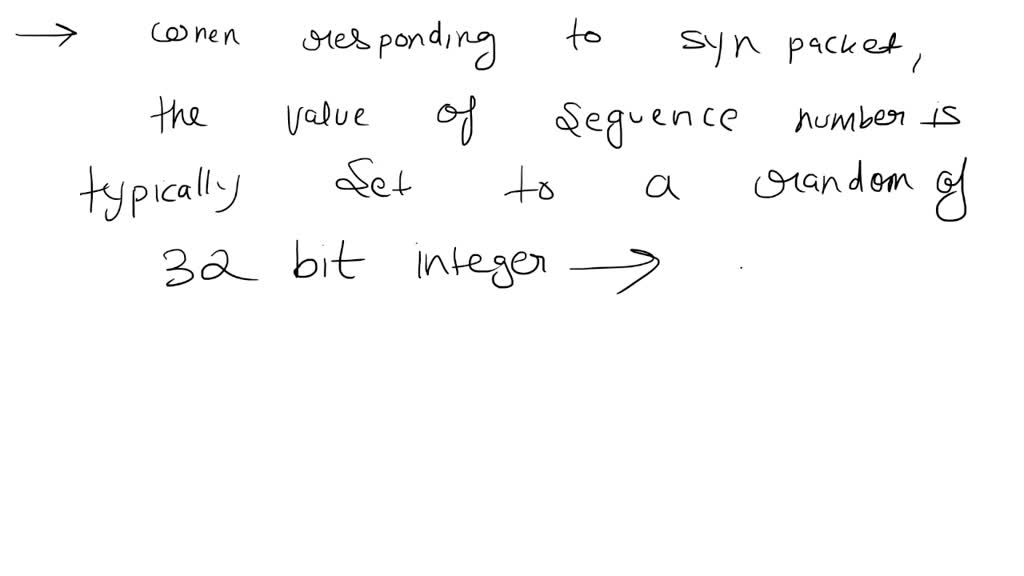 → when responding to syn packet,
the value of Sequence number is
typically Set to a random of
32 bit integer →